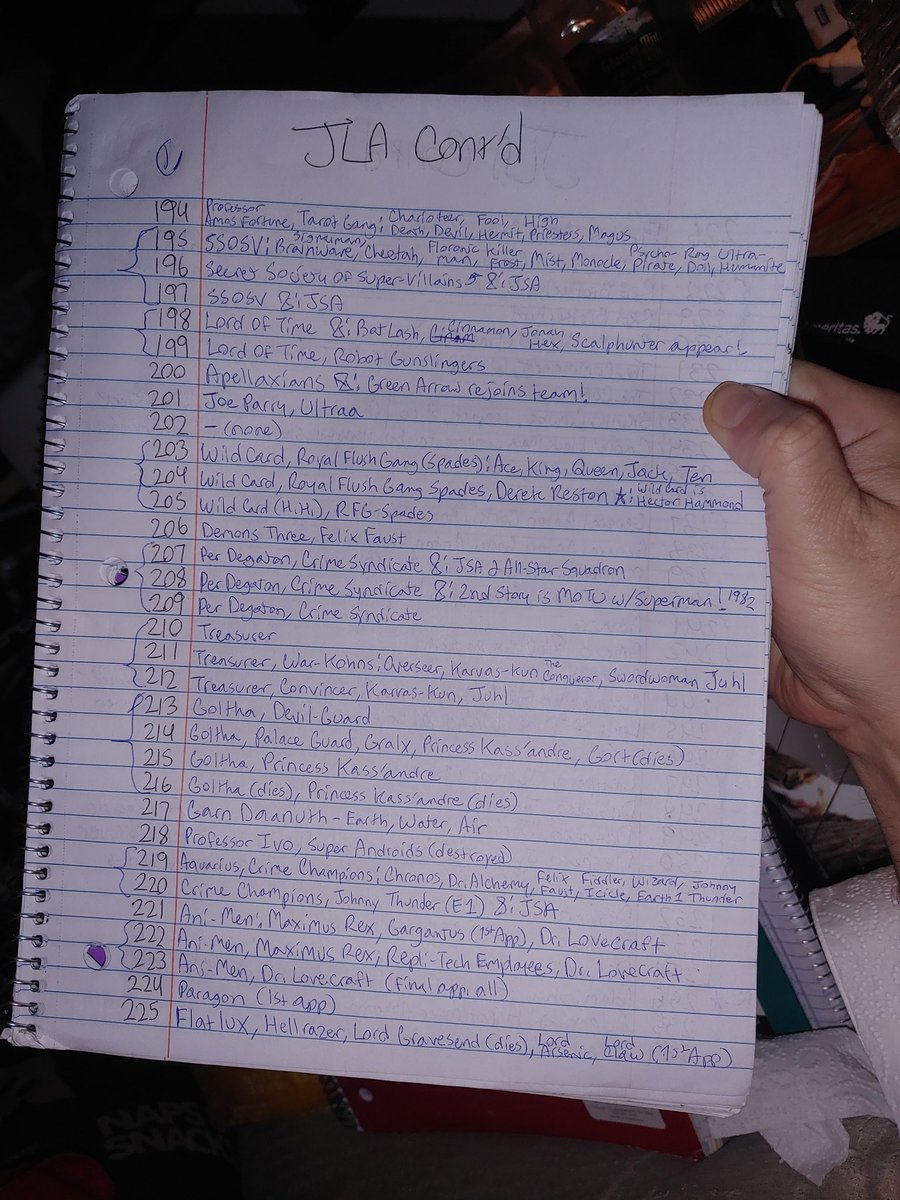 JLA Cont'd
194 Professor Amos Fortune, Tarot Gang: Charioteer, Fool, High
Death, Devil, Hermit, Priestess, Magus
195 SSOSV: Signalman, Brainwave, Cheetah, Floronic man, Killer Frost, Mist, Monocle, Psycho-Pirate, Rag Doll, Ultra-Humanite
196 Secret Society of Super-Villains & JSA
197 SSOSV &: JSA
198 Lord Of Time &: Bat Lash, Cinnamon, Jonah Hex, Scalphunter appear!
199 Lord Of Time, Robot Gunslingers
200 Apellaxians &: Green Arrow rejoins team!
201 Joe Parry, Ultraa
202 - (none)
203 Wild Card, Royal Flush Gang (Spades): Ace, King, Queen, Jack, Ten
204 Wild Card, Royal Flush Gang Spades, Derek Reston ★: Wild Card is Hector Hammond
205 Wild Card (H.H.), RFG-Spades
206 Demons Three, Felix Faust
207 Per Degaton, Crime Syndicate &: JSA & All-Star Squadron
208 Per Degaton, Crime Syndicate &: 2nd Story is MOTU w/Superman! 1982
209 Per Degaton, Crime Syndicate
210 Treasurer
211 Treasurer, War-Kohns: Overseer, Karvas-Kun The Conqueror, Swordwoman Juhl
212 Treasurer, Convincer, Karvas-Kun, Juhl
213 Goltha, Devil-Guard
214 Goltha, Palace Guard, Gralx, Princess Kass'andre, Gort (dies)
215 Goltha, Princess Kass'andre
216 Goltha (dies), Princess Kass'andre (dies)
217 Garn Daanuth - Earth, Water, Air
218 Professor Ivo, Super Androids (destroyed)
219 Aquarius, Crime Champions: Chronos, Dr. Alchemy, Felix Faust, Fiddler, Icicle, Wizard, Johnny Thunder Earth 1
220 Crime Champions, Johnny Thunder (E1) &: JSA
221 Ani-Men:, Maximus Rex, Gargantus (1st App), Dr. Lovecraft
222 Ani-Men, Maximus Rex, Repli-Tech Employees, Dr. Lovecraft
223 Ani-Men, Dr. Lovecraft (final app: all)
224 Paragon (1st app)
225 Flatlux, Hellrazer, Lord Gravesend (dies), Lord Arsenic, Lord Claw (1st App)
eritas.
NAPS
SNACK